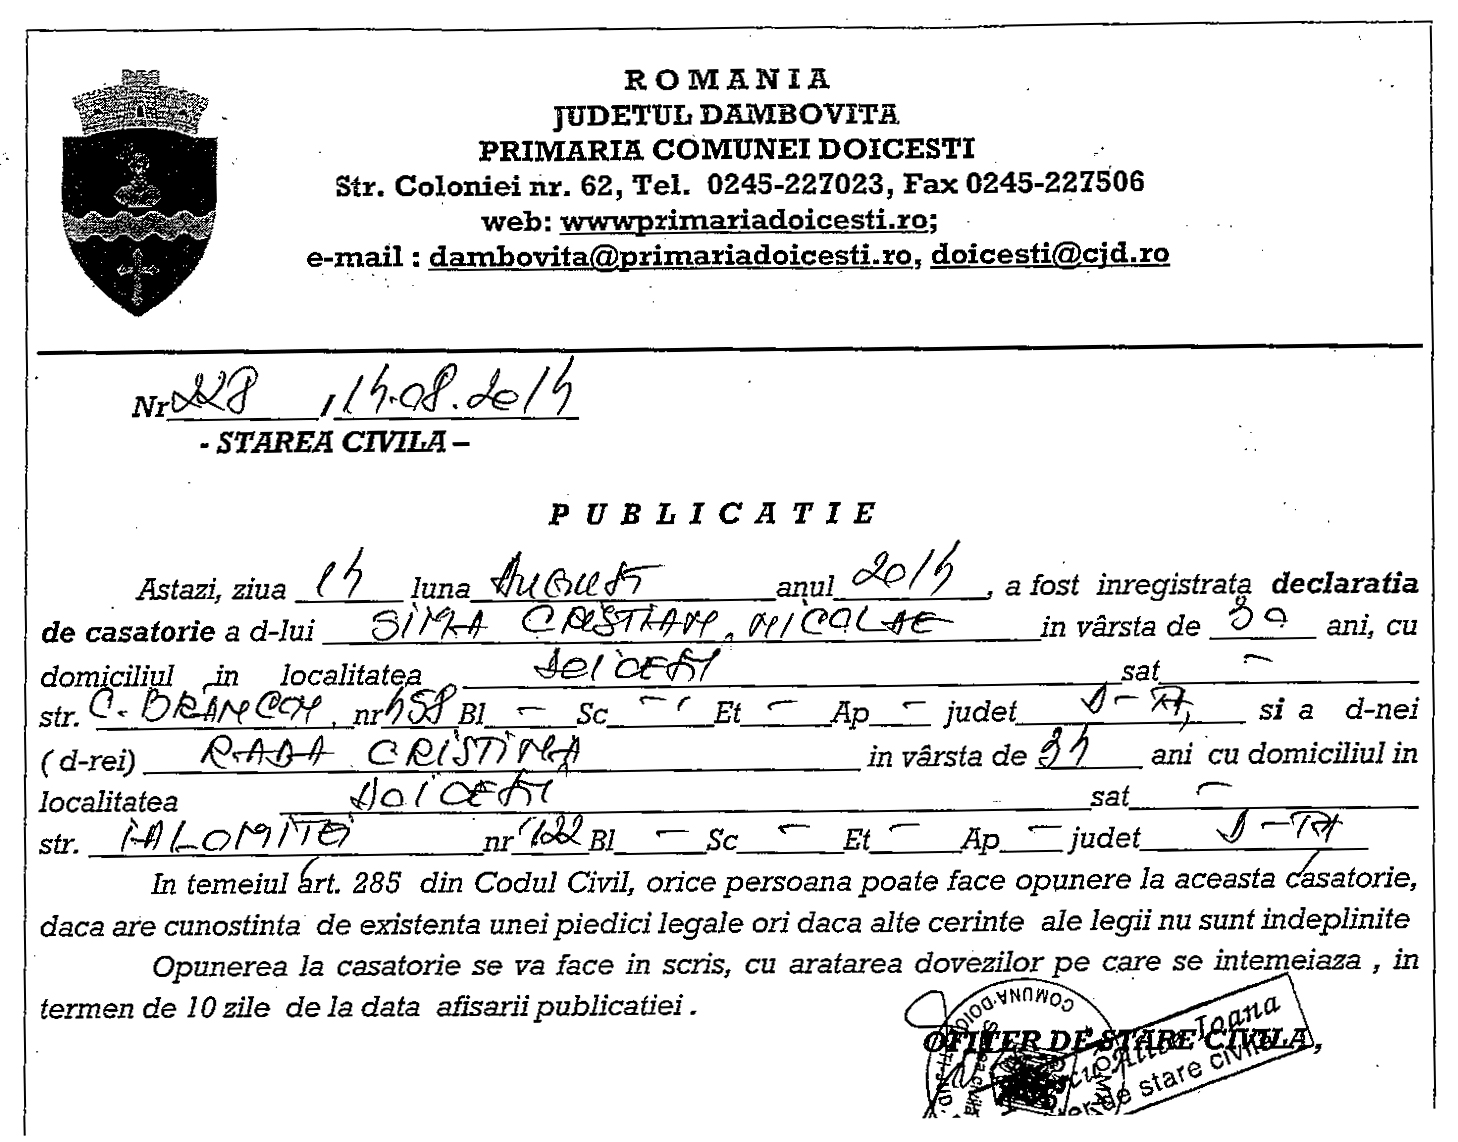 ROMANIA
JUDETUL DAMBOVITA
PRIMARIA COMUNEI DOICESTI
Str. Coloniei nr. 62, Tel. 0245-227023, Fax 0245-227506
web: wwwprimariadoicesti.ro;
e-mail : dambovita@primariadoicesti.ro, doicesti@cjd.ro
Nr 228 / 14.08.2014
- STAREA CIVILA –
PUBLICATIE
Astazi, ziua 14 luna AUGUST anul 2014, a fost inregistrata declaratia
de casatorie a d-lui SIMA CRISTIAN, NICOLAE in vârsta de 39 ani, cu
domiciliul in localitatea DOICESTI sat –
str. C. BRANCOV, nr 458 Bl – Sc – Et – Ap – judet D-TA, si a d-nei
( d-rei) RADA CRISTINA in vârsta de 34 ani cu domiciliul in
localitatea DOICESTI sat –
str. IALOMITEI nr 122 Bl – Sc – Et – Ap – judet D-TA
In temeiul art. 285 din Codul Civil, orice persoana poate face opunere la aceasta casatorie,
daca are cunostinta de existenta unei piedici legale ori daca alte cerinte ale legii nu sunt indeplinite
Opunerea la casatorie se va face in scris, cu aratarea dovezilor pe care se intemeiaza , in
termen de 10 zile de la data afisarii publicatiei .
OFITER DE STARE CIVILA,
Ioana
de stare civila
COMUNA